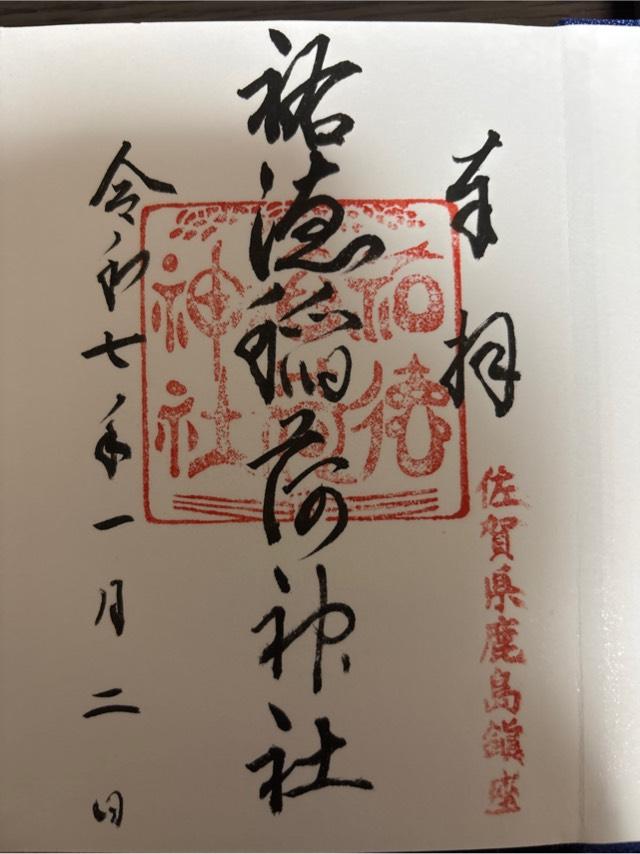 奉拝
佐賀県鹿島鎮座
祐徳稲荷神社
祐徳
稲荷
神社
令和七年一月二日